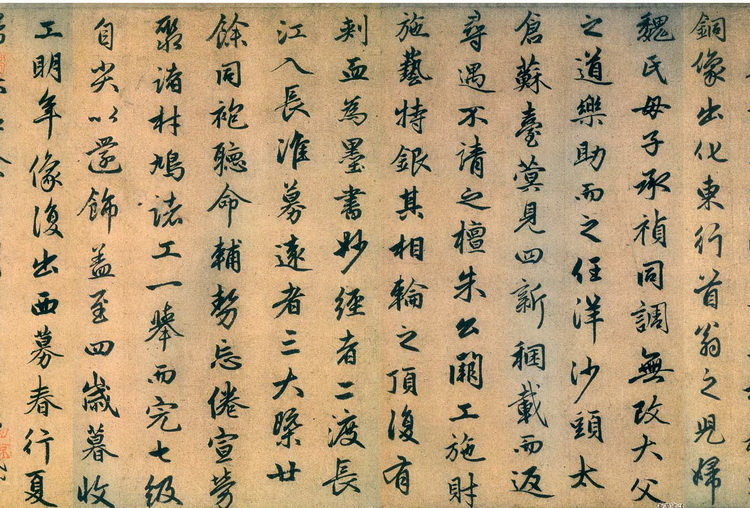 銅像出化東行首翁之兒婦
魏氏母子承禎同調無改大父
之道樂助而之任洋沙頭太
倉蘇臺蓂見四新稛載而返
尋遇不請之檀朱公闢工施財
施藝特銀其相輪之頂復有
刺血為墨書妙經者二渡長
江入長淮募遠者三大槩廿
餘同袍聽命輔勢忘倦宣勞
聚諸材鳩諸工一舉而完七級
自尖以還飾蓋至四歲暮收
工明年像復出西募春行夏